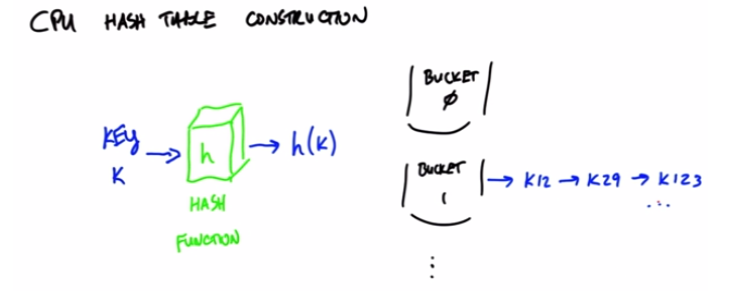 CPU HASH TABLE CONSTRUCTION
KEY
K
h
h(K)
HASH
FUNCTION
BUCKET
Ø
BUCKET
1
→ K12 → K29 → K123
...
⋮